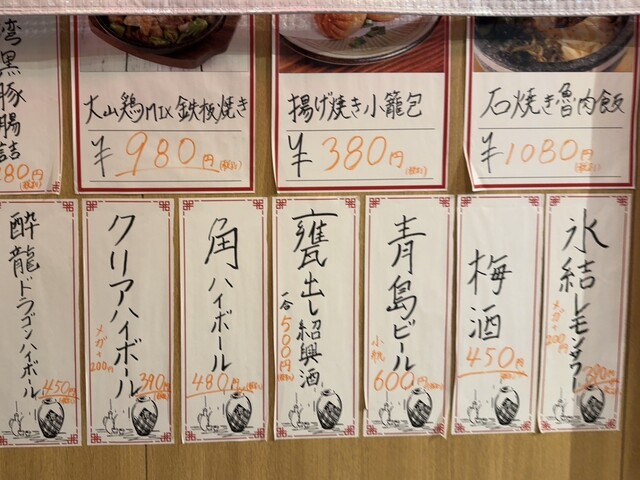 湾黒豚腸詰
80円(税込)
大山鶏MIX鉄板焼き
¥980円(税込)
揚げ焼き小籠包
¥380円(税込)
石焼き魯肉飯
¥1080円(税込)
氷結レモンサワー
メガ+200円
390円(税込)
梅酒
450円(税込)
青島ビール
小瓶
600円(税込)
甕出し紹興酒
一合
500円(税込)
角ハイボール
480円(税込)
クリアハイボール
メガ+200円
390円(税込)
酔龍ドラゴンハイボール
450円(税込)